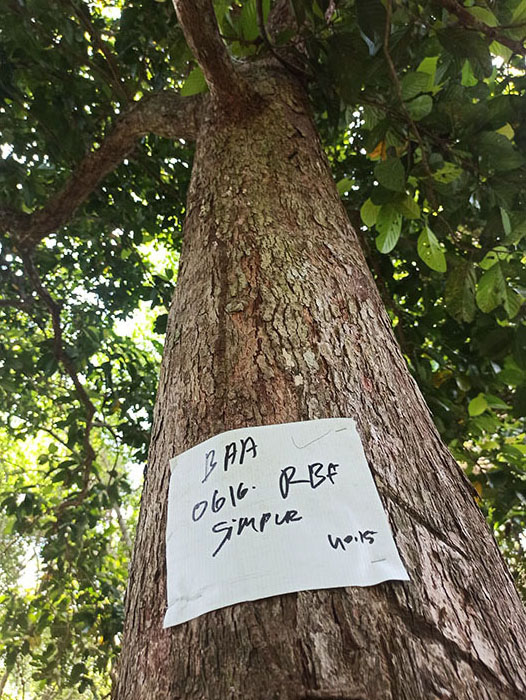 BAA
0616. RBF
SIMPUR
40.15